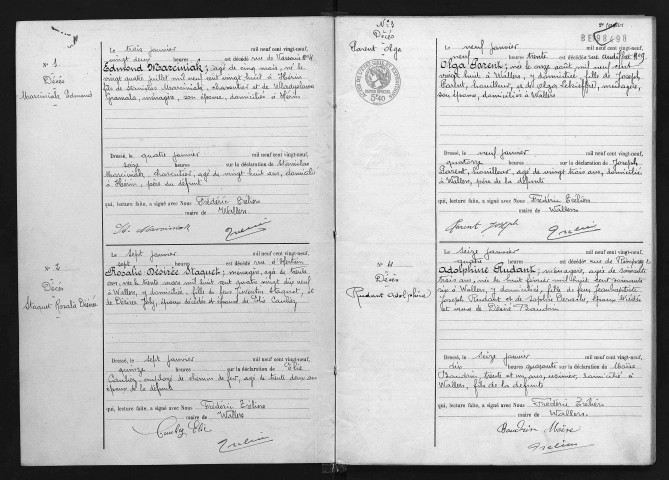 N° 1
Décès
Marciniak Edmond
Le trois janvier mil neuf cent vingt-neuf,
vingt deux heures est décédé rue de
Edmond Marciniak, agé de cinq mois, né le
vingt quatre juillet mil neuf cent vingt huit à Hérin
fils de Stanislas Marciniak, charcutier et de
ménagère, son épouse, domiciliés à Hérin
Dressé, le quatre janvier mil neuf cent vingt-neuf,
seize heures sur la déclaration de Stanislas
Marciniak, charcutier, agé de vingt huit ans, domicilié
à Hérin, père du défunt
qui, lecture faite, a signé avec Nous Frédéric
maire de Wallers
St. Marciniak
N° 2
Décès
Staquet Rosalie Désirée
Le sept janvier mil neuf cent vingt-neuf,
sept heures est décédée rue d'Hérin
Rosalie Désirée Staquet, ménagère, agée de trente
ans, née le trente mars mil huit cent quatre vingt dix neuf
à Wallers, y domiciliée, fille de feu Staquet, et
de Désirée Joly, époux décédés et épouse de Elie
Dressé, le sept janvier mil neuf cent vingt-neuf,
quinze heures sur la déclaration de Elie
employé de chemin de fer, agé de trente deux ans
époux de la défunte
qui, lecture faite, a signé avec Nous Frédéric
maire de Wallers
Elie
N° 3
Décès
Parent Olga
BE 98498
Le neuf janvier mil neuf cent vingt-neuf,
neuf heures trente est décédée rue
Olga Parent, née le onze août mil neuf cent
vingt huit à Wallers, y domiciliée, fille de Joseph
Parent, houilleur, et de Olga ménagère,
son épouse, domiciliés à Wallers
Dressé, le neuf janvier mil neuf cent vingt-neuf,
quatorze heures sur la déclaration de Joseph
Parent, houilleur, agé de vingt trois ans, domicilié
à Wallers, père de la défunte
qui, lecture faite, a signé avec Nous Frédéric
maire de Wallers
Parent Joseph
N° 4
Décès
Rudant Adolphine
Le seize janvier mil neuf cent vingt-neuf,
quatre heures est décédée rue de
Adolphine Rudant, ménagère, agée de soixante
trois ans, née le huit février mil huit cent soixante
six à Wallers, y domiciliée, fille de feu Jean Baptiste
Joseph Rudant et de Sophie époux décédés
et veuve de Désiré Baudrin
Dressé, le seize janvier mil neuf cent vingt-neuf,
dix heures quarante sur la déclaration de Moïse
Baudrin, trente et un ans, domicilié à
Wallers, fils de la défunte
qui, lecture faite, a signé avec Nous Frédéric
maire de Wallers
Baudrin Moïse